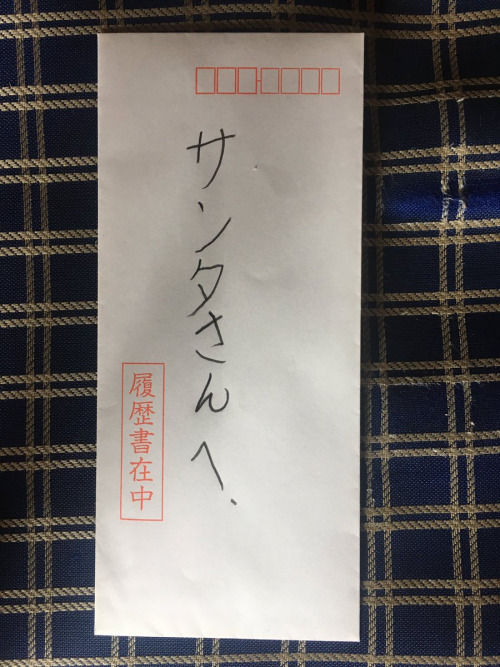 サンタさんへ、
履歴書在中